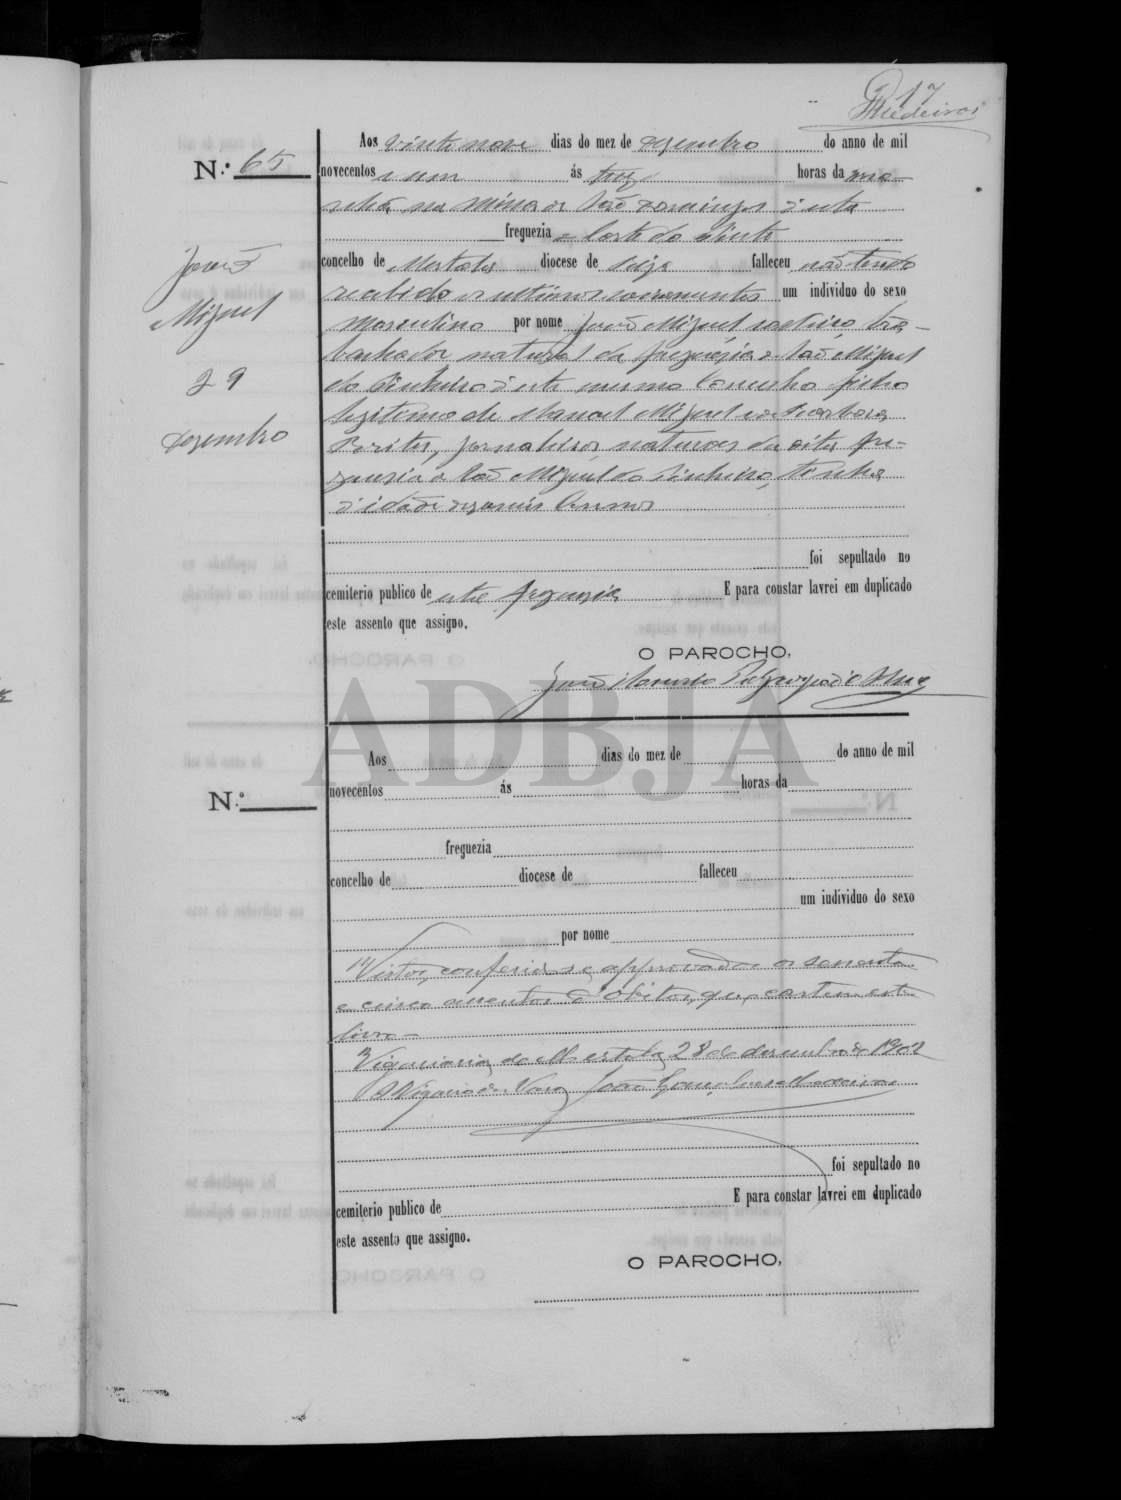 17
Medeiros
N.º 65
João
Miguel
29
Dezembro
Aos vinte nove dias do mez de Dezembro do anno de mil
novecentos e um ás treze horas da ma-
nhã, na Mina de São Domingos d'esta
freguezia de Corte do Pinto
concelho de Mertola diocese de Beja falleceu não tendo
recebido os ultimos sacramentos um individuo do sexo
Masculino por nome João Miguel solteiro, tra-
balhador natural da freguezia de São Miguel
do Pinheiro d'este mesmo Concelho filho
legitimo de Manoel Miguel e de Barbara
Brites, jornaleiros, naturaes da dita fre-
guezia de São Miguel do Pinheiro, tinha
d'idade annos
foi sepultado no
cemiterio publico de esta freguezia E para constar lavrei em duplicado
este assento que assigno.
O PAROCHO,
João
ADBJA
N.º
Aos dias do mez de do anno de mil
novecentos ás horas da
freguezia
concelho de diocese de falleceu
um individuo do sexo
por nome
Vistos, conferidos e approvados os sessenta
e cinco assentos d'obitos, que contem este
livro
Vigararia de Mertola, 28 de dezembro de 1902
O Vigario da Vara João Gonçalves Medeiros
foi sepultado no
cemiterio publico de E para constar lavrei em duplicado
este assento que assigno.
O PAROCHO,